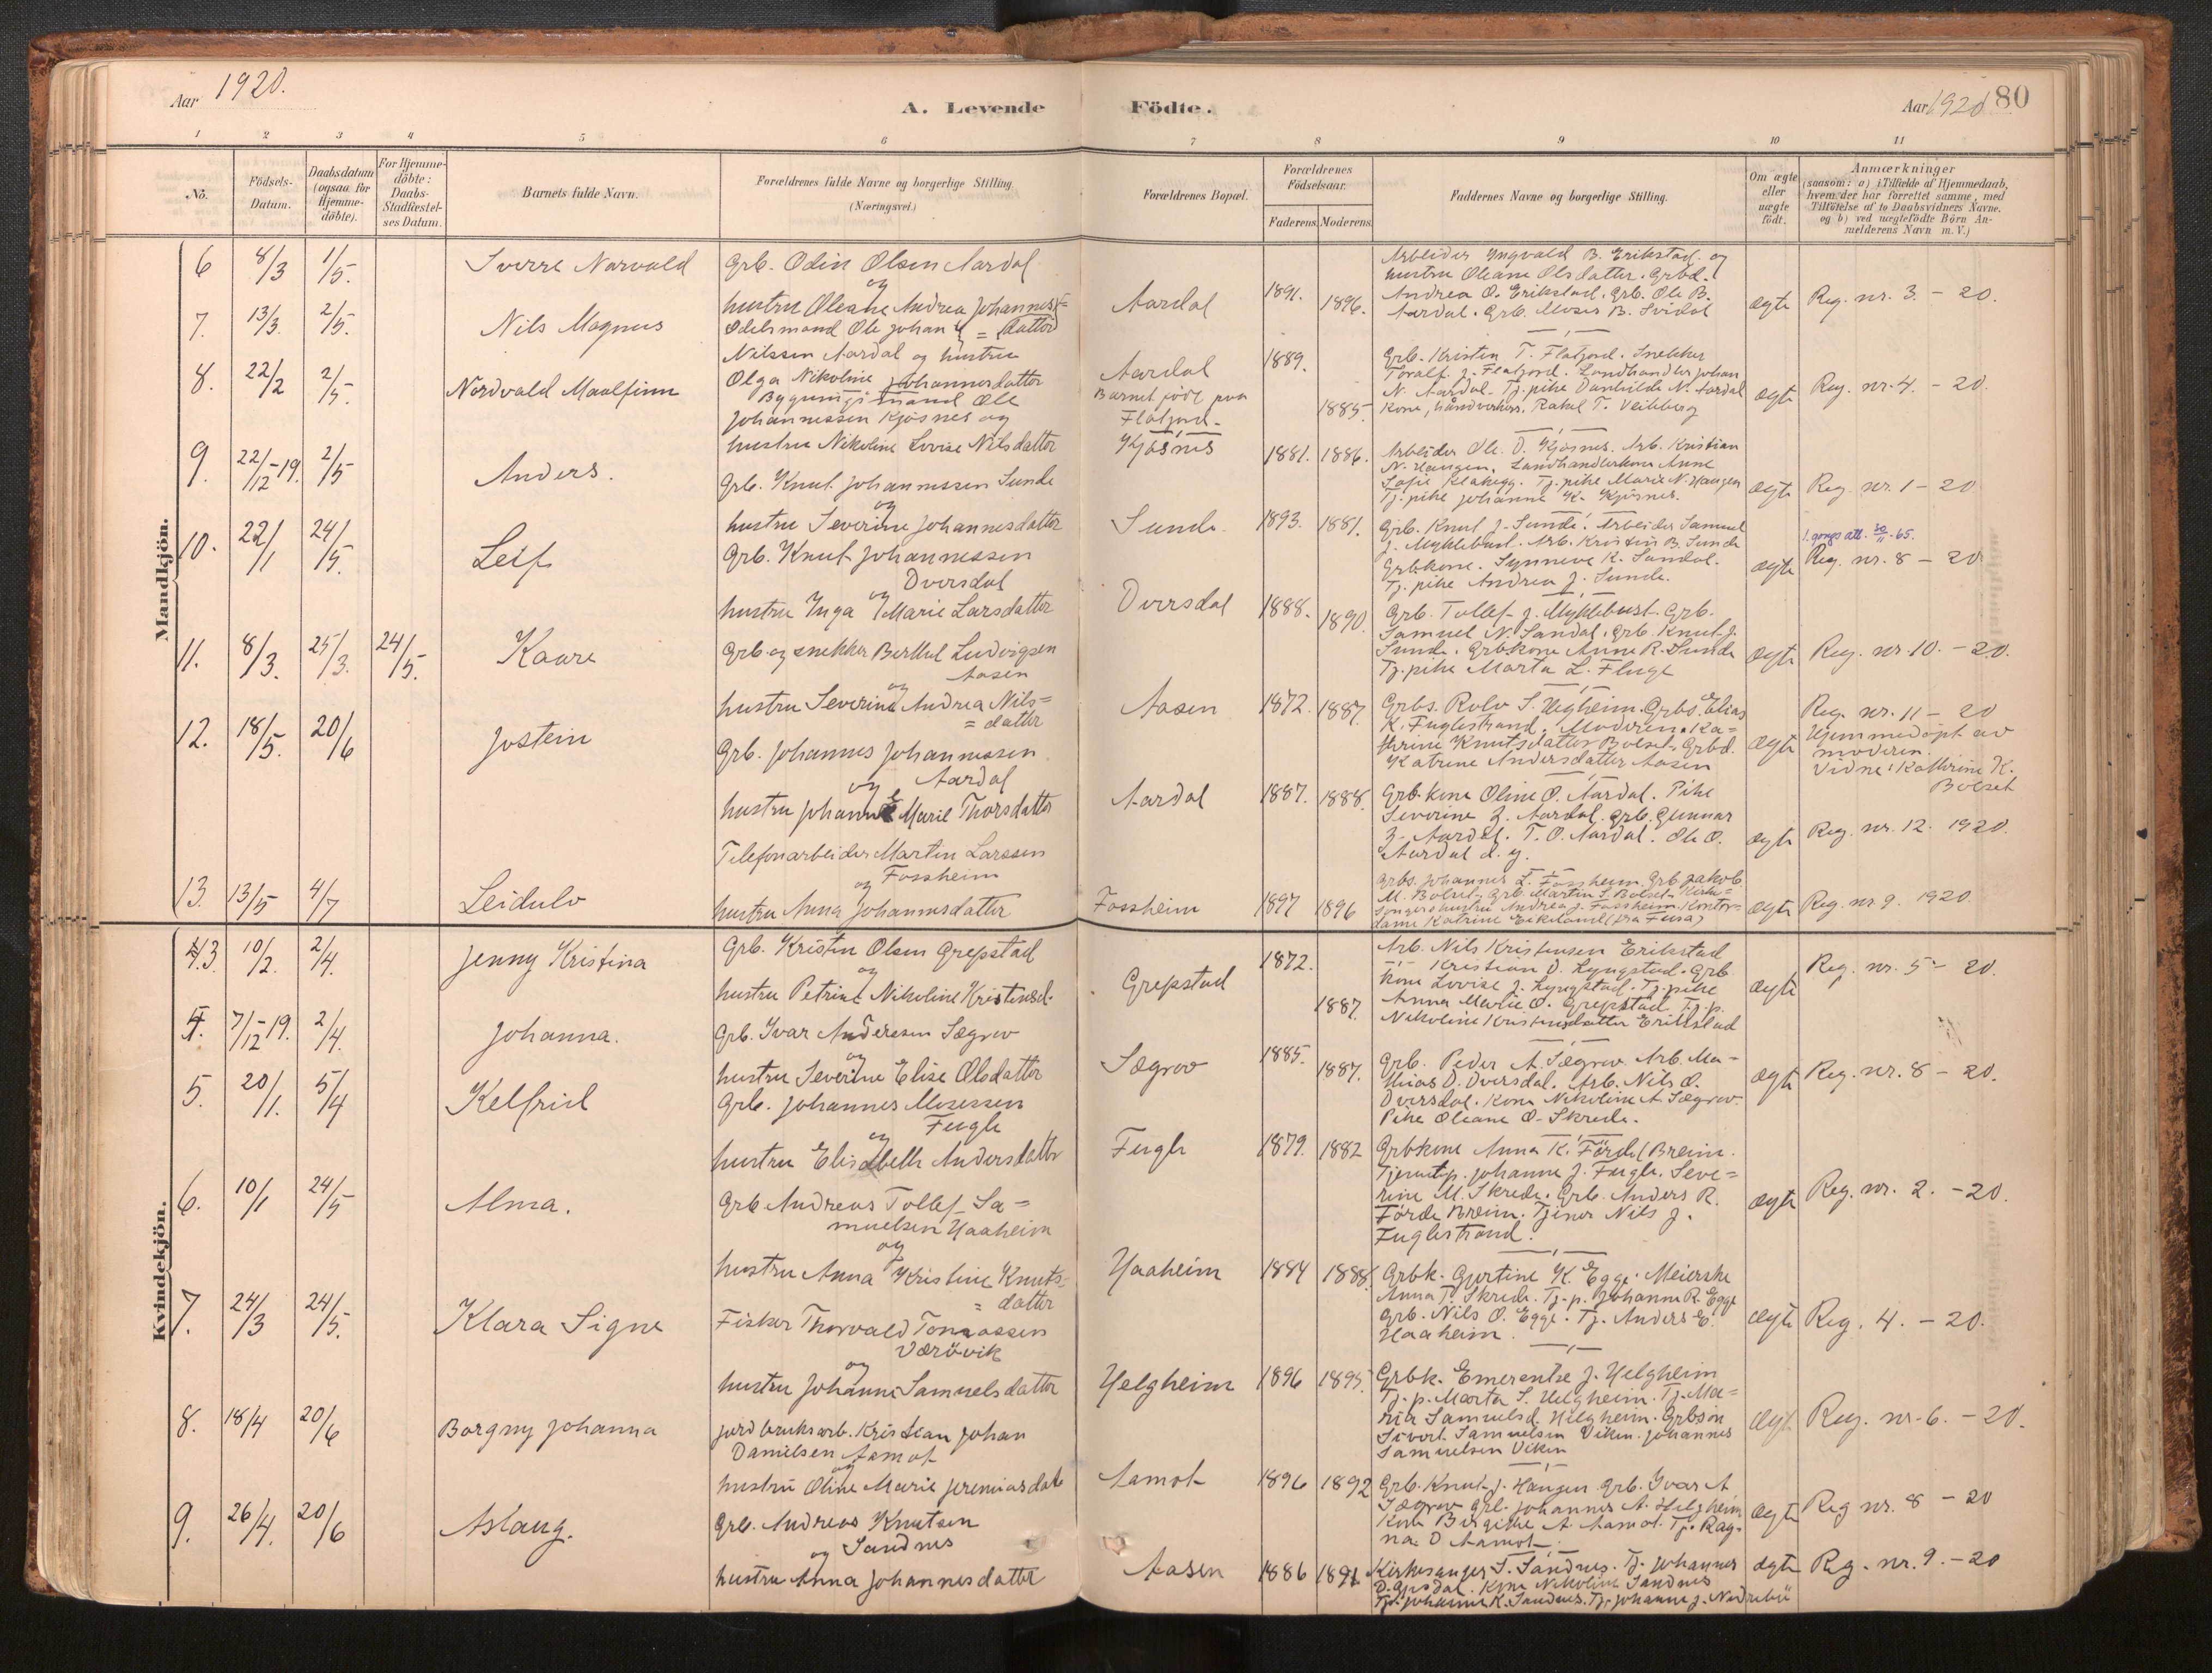 Aar 1920.
A. Levende
Födte.
Aar 1920 80
1 2 3 4 5 6 7 8 9 10 11
No.
Födsels-
Datum.
Daabsdatum
(ogsaa for
Hjemme-
döbte).
For Hjemme-
döbte:
Daabs-
Stadfæstel-
ses Datum.
Barnets fulde Navn.
Forældrenes fulde Navne og borgerlige Stilling
(Næringsvei.)
Forældrenes Bopæl.
Forældrenes
Födselsaar.
Faderens. Moderens.
Faddernes Navne og borgerlige Stilling.
Om ægte
eller
uægte
födt.
Anmærkninger
(saasom: a) i Tilfælde af Hjemmedaab,
hvem der har forrettet samme, med
Tilföielse af to Daabsvidners Navne.
og b) ved uægtefödte Börn An-
melderens Navn m. V.)
Mandkjön.
6 8/3 1/5. Sverre Norvald
Grb. Odin Olsen Aardal
og
hustru Oleane Andrea Johannes=
= datter
Aardal 1891. 1896.
Arbeider Yngvald B. Erikstad. og
hustru Oleane Olsdatter. Grbd.
Andrea O. Erikstad. Grb. Ole B.
Aardal. Grb. Moses B. Svidal
ægte Reg. nr. 3. - 20.
7. 13/3. 2/5. Nils Magnus
Odelsmand Ole Johan
Nilssen Aardal og hustru
Olga Nikoline Johannesdatter
Aardal
Barnet født paa
Flatjord.
1889. 1885
Grb. Kristen T. Flatjord. Snekker
Toralf J. Flatjord. Landhandler Johan
N. Aardal. Tj. pike Danhilde N. Aardal
Kone, Rakel T. Veiteberg
ægte Reg. nr. 4. - 20.
8. 22/2 2/5. Nordvald Maalfinn
Bygningsmand Ole
Johannessen Kjøsnes og
hustru Nikoline Lovise Nilsdatter
Kjøsnes 1881. 1886.
Arbeider Ole. D. Kjøsnes. Arb. Kristian
N. Haugen. Landhandlerkone Anne
Sofie Klakegg. Tj. pike Marie N. Haugen
Tj. pike Johanne K. Kjøsnes.
ægte Reg. nr. 1 - 20
9. 22/12-19. 2/5 Anders.
Grb. Knut Johannessen Sunde
og
hustru Severine Johannesdatter
Sunde 1893. 1881.
Grb. Knut J. Sunde. Arbeider Samuel
J. Myklebust. Arb. Kristen B. Sunde
Grbkone. Synneve K. Sandal.
Tj. pike Andrea J. Sunde.
ægte
1. gangs att. 30/11-65.
Reg. nr. 8 - 20
10. 22/1 24/5. Leif
Grb. Knut Johannessen
Dversdal
og
hustru Inga Marie Larsdatter
Dversdal 1888. 1890
Grb. Tollef J. Myklebust. Grb.
Samuel N. Sandal. Grb. Knut J.
Sunde. Grbkone Anne R. Sunde
Tj. pike Marta L. Fluge
ægte Reg. nr. 10. - 20.
11. 8/3. 25/3. 24/5. Kaare
Grb. og snekker Berthel Ludvigsen
Aasen
og
hustru Severine Andrea Nils=
= datter
Aasen 1872. 1887.
Grbs. Rolv S. Helgheim. Grbs. Elias
K. Fuglestrand. Moderen. Ka=
thrine Knutsdatter Bolset. Grbd.
Katrine Andersdatter Aasen
ægte
Reg. nr. 11 - 20
Hjemmedøpt av
moderen.
Vidne: Kathrine K.
Bolset
12. 18/5. 20/6 Jostein
Grb. Johannes Johannessen
og Aardal
hustru Johanne Marie Thorsdatter
Aardal 1887. 1888.
Grb. kone Oline O. Aardal. Pike
Severine J. Aardal. Grb. Gunnar
J. Aardal. T. O. Aardal. Ole O.
Aardal d. y.
ægte Reg. nr. 12. 1920.
13. 13/5 4/7 Leidulv
Telefonarbeider Martin Larssen
Fossheim
og
hustru Anna Johannesdatter
Fossheim 1897 1896
Grbs. Johannes L. Fossheim. Grb. Jakob
M. Bolset. Grb. Martin S. Bolset. Kirke=
sanger hustru Andrea J. Fossheim. Kontor-
dame Katrine Eikeland (fra Fusa)
ægte Reg. nr. 9. 1920.
Kvindekjön.
3. 10/2. 2/4. Jenny Kristina
Grb. Kristen Olsen Grepstad
og
hustru Petrine Nikoline Kristensd.
Grepstad 1872. 1887.
Arb. Nils Kristensen Erikstad
Kristian O. Lyngstad. Grb
kone Lovise J. Lyngstad. Tj. pike
Anna Marie O. Grepstad Tj. p.
Nikoline Kristensdatter Erikstad
ægte Reg. nr. 5 - 20.
4. 7/12-19. 2/4. Johanna.
Grb. Ivar Anderssen Sægrov
og
hustru Severine Elise Olsdatter
Sægrov 1885. 1887.
Grb. Peder A. Sægrov Arb. Ma-
thias D. Dversdal. Arb. Nils O.
Dversdal. Kone Nikoline A. Sægrov.
Pike Oleane O. Skrede.
ægte Reg. nr. 8 - 20.
5. 20/1. 5/4 Kelfrid
Grb. Johannes Mosessen
Fugle
og
hustru Elisabeth Andersdatter
Fugle 1879. 1882
Grbkone Anna K. Førde (Breim.
Tjenestp. Johanne J. Fugle. Seve=
rine M. Skrede. Grb. Anders R.
Førde Breim. Tjener Nils J.
Fuglestrand.
ægte Reg. nr. 2. - 20.
6. 10/1 24/5 Alma.
Grb Andreas Tollef Sa=
muelsen Haaheim
og
hustru Anna Kristine Knuts=
= datter
Haaheim 1884 1888
Grbk. Gjertine K. Egge. Meierske
Anna T. Skrede. Tj. p. Johanne R. Egge
Grb. Nils O. Egge. Tj. Anders E.
Haaheim.
ægte Reg. 4. - 20.
7. 24/3 24/5. Klara Signe
Fisker Thorvald Tomassen
Værövik
og
hustru Johanne Samuelsdatter
Helgheim 1896 1895
Grbk. Emerentse J. Helgheim
Tj. p. Marta S. Helgheim. Tj. Ma=
ria Samuelsd. Helgheim. Grbsøn
Sivert Samuelsen Viken. Johannes
Samuelsen Viken
ægte Reg. nr. 6. - 20.
8. 18/4 20/6 Borgny Johanna
Jordbruksarb. Kristian Johan
Danielsen Aamot
og
hustru Oline Marie Jeremiasdat
Aamot 1896 1892
Grb. Knut J. Haugen Grb. Ivar A
Sægrov Grb. Johannes A. Helgheim
Kone Birgitte A. Aamot. Tj. Rag-
na. D Aamot.
ægte Reg nr. 8 - 20
9. 26/4. 20/6 Aslaug.
Grb. Andreas Knutsen
Sandnes
og
hustru Anna Johannesdatter
Aasen 1886 1891
Kirkesanger S. Sandnes. Tj. Johannes
Kone Nikoline Sandnes
Tj. Johanne K. Sandnes. Tj. Johanne J. Nedrebø
ægte Reg. nr. 9. - 20